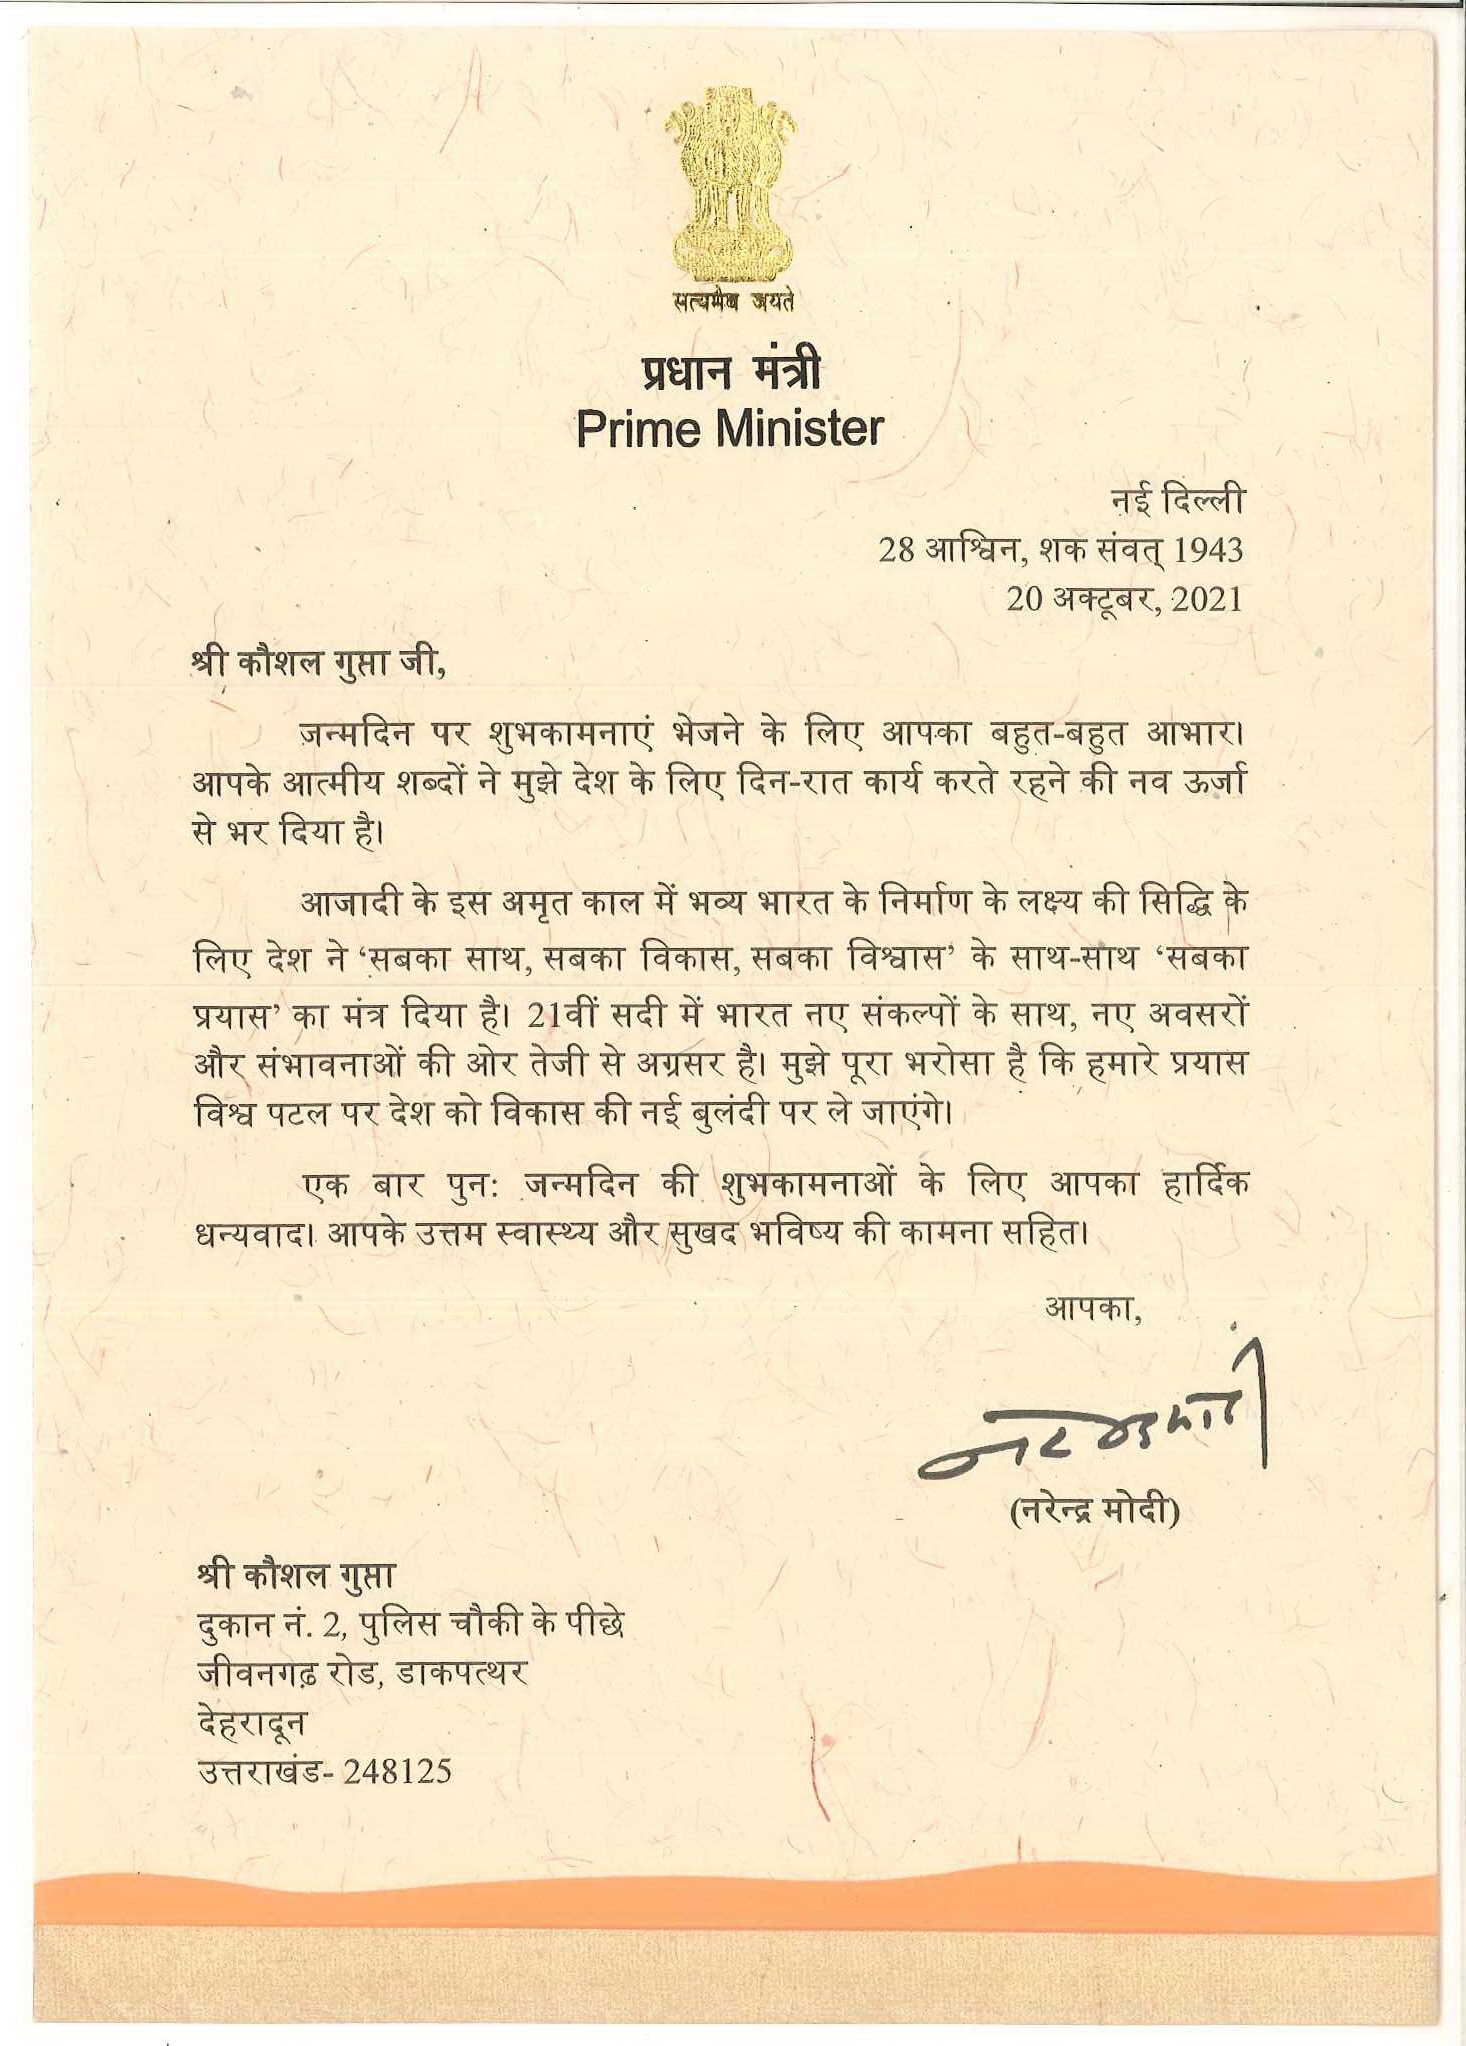 सत्यमेव जयते
प्रधान मंत्री
Prime Minister
नई दिल्ली
28 आश्विन, शक संवत् 1943
20 अक्टूबर, 2021
श्री कौशल गुप्ता जी,
जन्मदिन पर शुभकामनाएं भेजने के लिए आपका बहुत-बहुत आभार।
आपके आत्मीय शब्दों ने मुझे देश के लिए दिन-रात कार्य करते रहने की नव ऊर्जा
से भर दिया है।
आजादी के इस अमृत काल में भव्य भारत के निर्माण के लक्ष्य की सिद्धि के
लिए देश ने ‘सबका साथ, सबका विकास, सबका विश्वास’ के साथ-साथ ‘सबका
प्रयास’ का मंत्र दिया है। 21वीं सदी में भारत नए संकल्पों के साथ, नए अवसरों
और संभावनाओं की ओर तेजी से अग्रसर है। मुझे पूरा भरोसा है कि हमारे प्रयास
विश्व पटल पर देश को विकास की नई बुलंदी पर ले जाएंगे।
एक बार पुन: जन्मदिन की शुभकामनाओं के लिए आपका हार्दिक
धन्यवाद। आपके उत्तम स्वास्थ्य और सुखद भविष्य की कामना सहित।
आपका,
(नरेन्द्र मोदी)
श्री कौशल गुप्ता
दुकान नं. 2, पुलिस चौकी के पीछे
जीवनगढ़ रोड, डाकपत्थर
देहरादून
उत्तराखंड- 248125